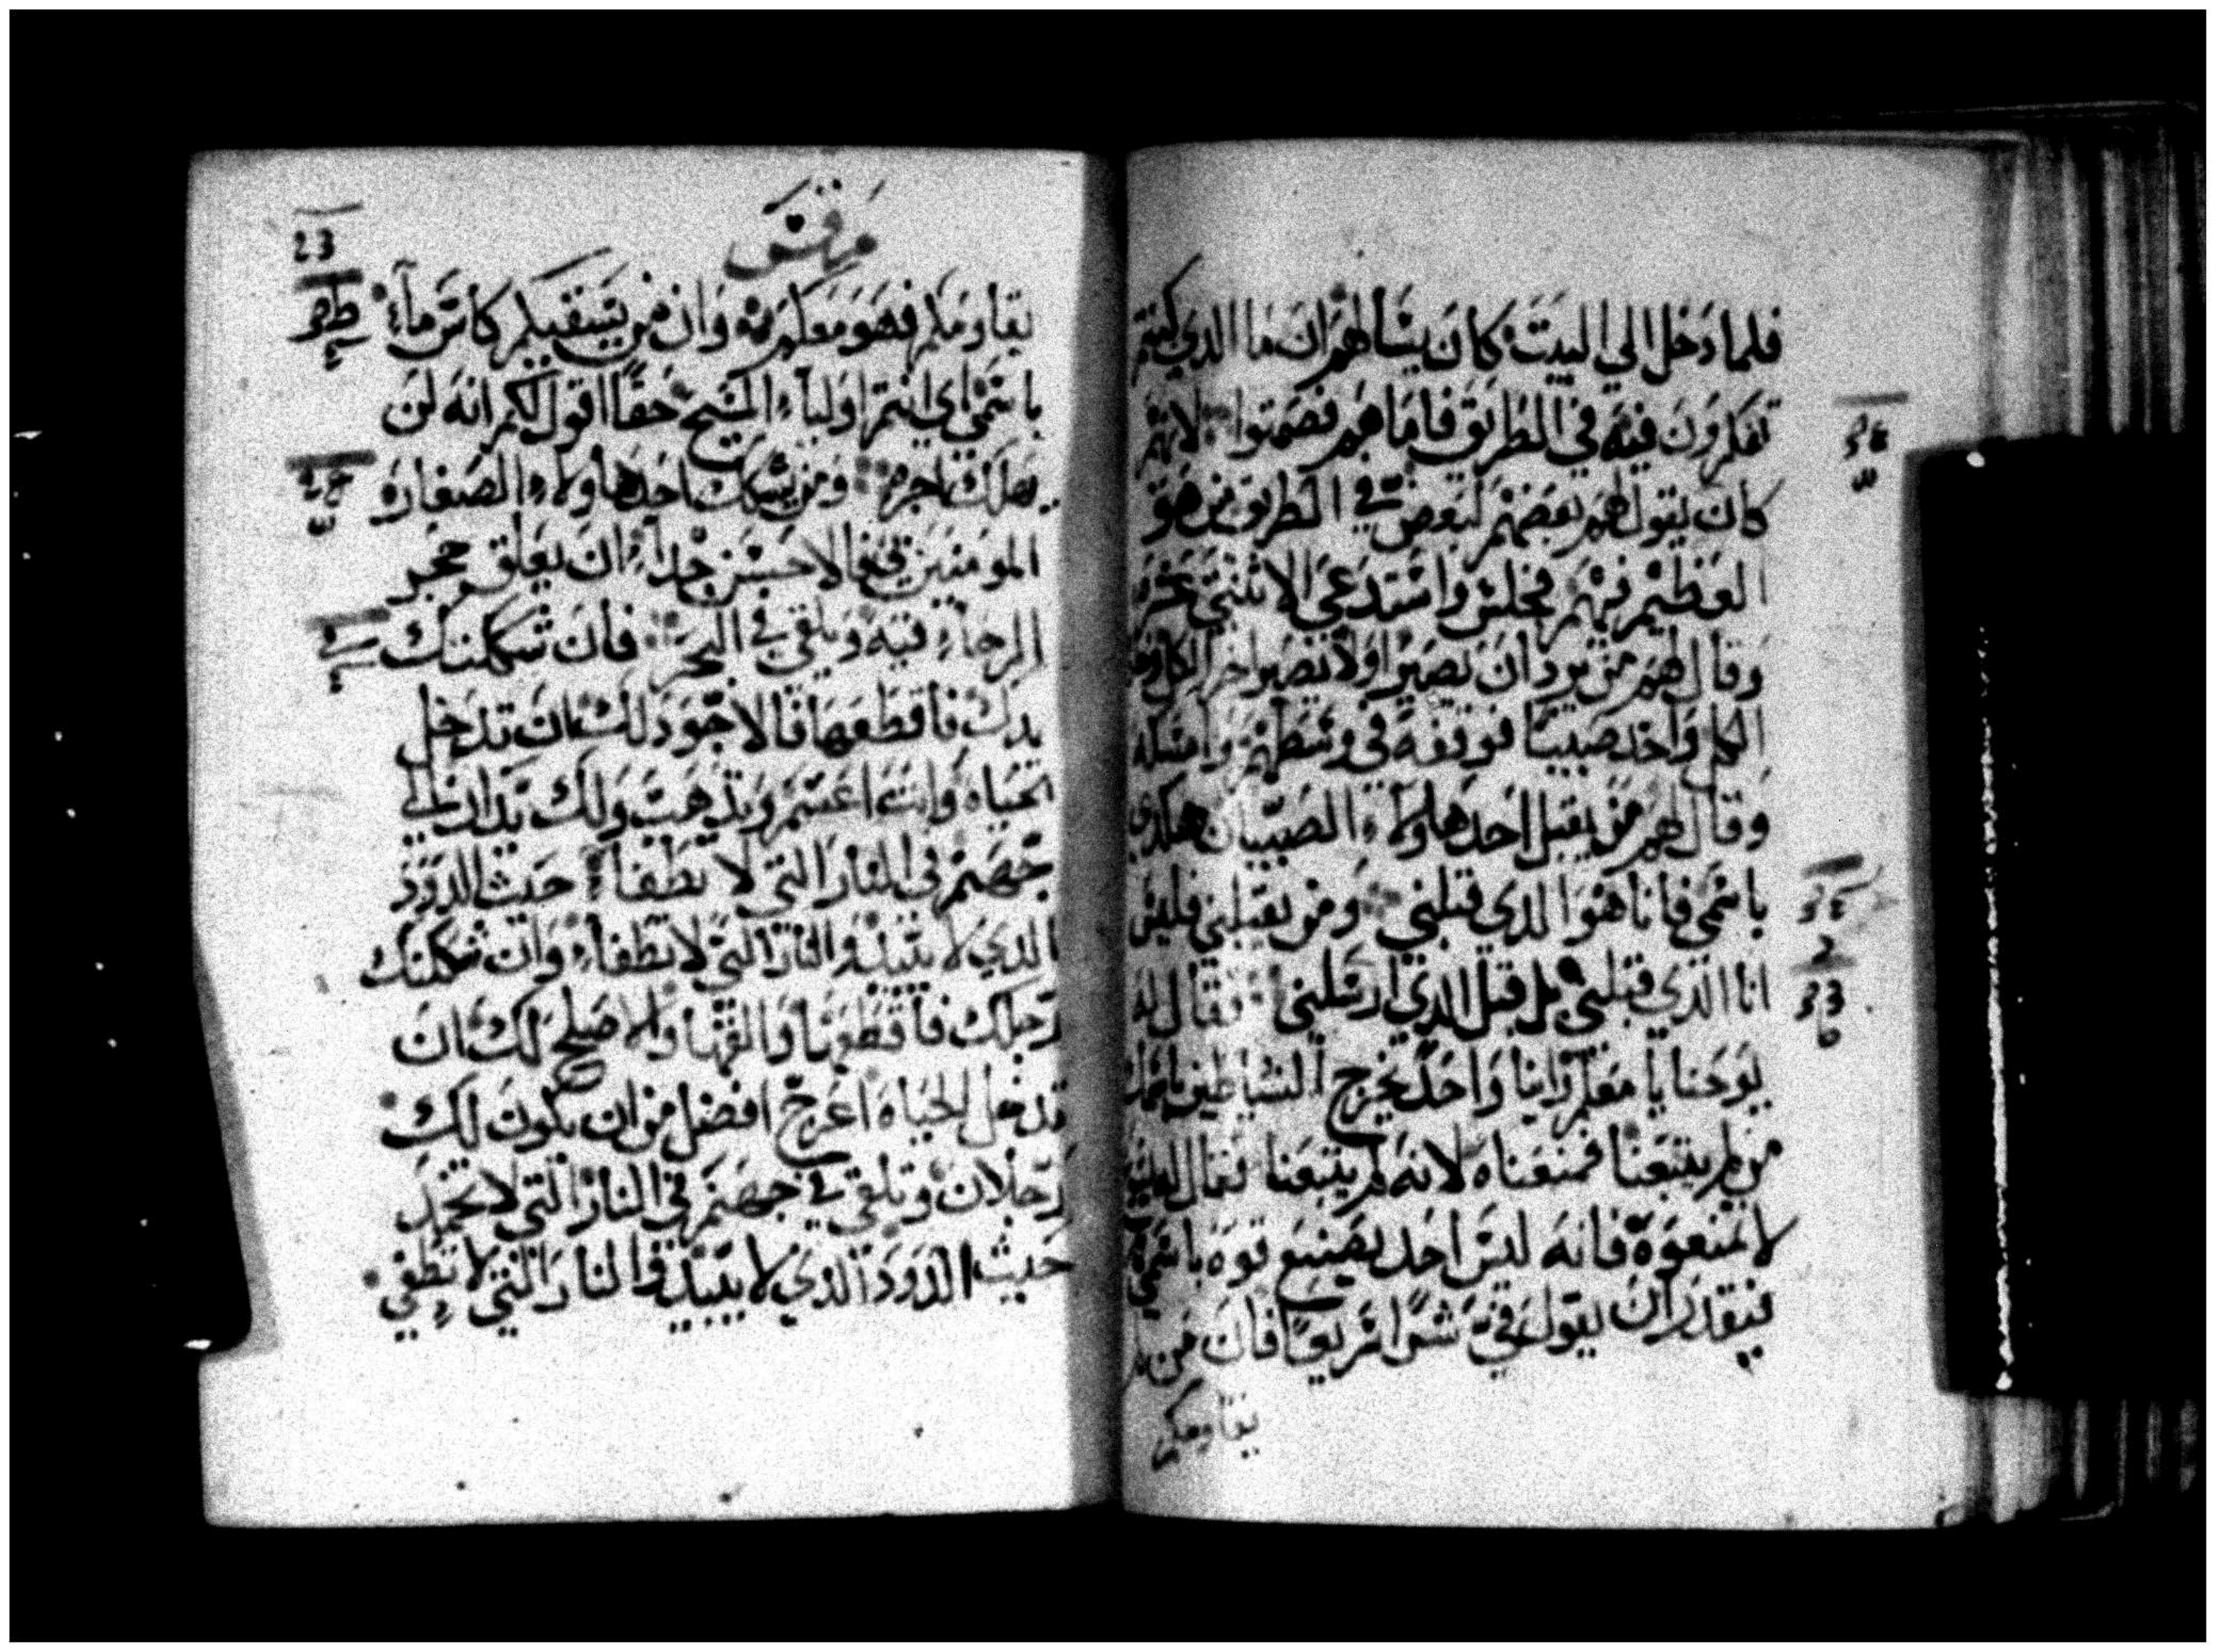 فلما دخل الي البيت كان يسالهم ان ما الدي كنتم
تفكرون فيه في الطريق فاما هم فصمتوا لانهم
كان يقول لهم بعضهم لبعض في الطريق من هو
العظيم فيهم فجلس واستدعي الاثنتي عشر
وقال لهم من يرد ان يصير اولا نصير اخر الكل
الكل واخد صبيا فوقفه في وسطهم وامسكه
وقال لهم من يقبل احد هاولاء الصبيان هكدي
باسمي فانا هوا الدي قبلني ومن يقبلني فليس
انا الدي قبلني بل قبل الدي ارسلني فقال له
يوحنا يا معلم راينا واحد يخرج الشياطين باسمك
من لم يتبعنا فمنعناه لانه لم يتبعنا فقال لهم
لا تمنعوه فانه ليس احد يصنع قوه باسمي
فيقدر ان يقول في شرا سريعا فان من لم
يقاومكم
مرقس
23
يقاومكم فهو معكم وان من يسقيكم كاس ماء
باسمي اي انتم اولياء المسيح حقا اقول لكم انه لن
يهلك اجره ومن يشكك احد هاولاء الصغار
المومنين في فالاحسن جدا ان يعلق حجر
الرحاء فيه ويلقي في البحر فان شككتك
يدك فاقطعها فالاجود لك ان تدخل
الحياه وانت اعسم وتدهب ولك يدان الي
جهنم في النار التي لا تطفاء حيث الدود
الدي لا يبيد والنار التي لا تطفاء وان شككتك
رجلك فاقطعها والقها والاصلح لك ان
تدخل الحياه اعرج افضل من ان يكون لك
رجلان وتلقي في جهنم في النار التي لا تخمد
حيث الدود الدي لا يبيد والنار التي لا تطفي